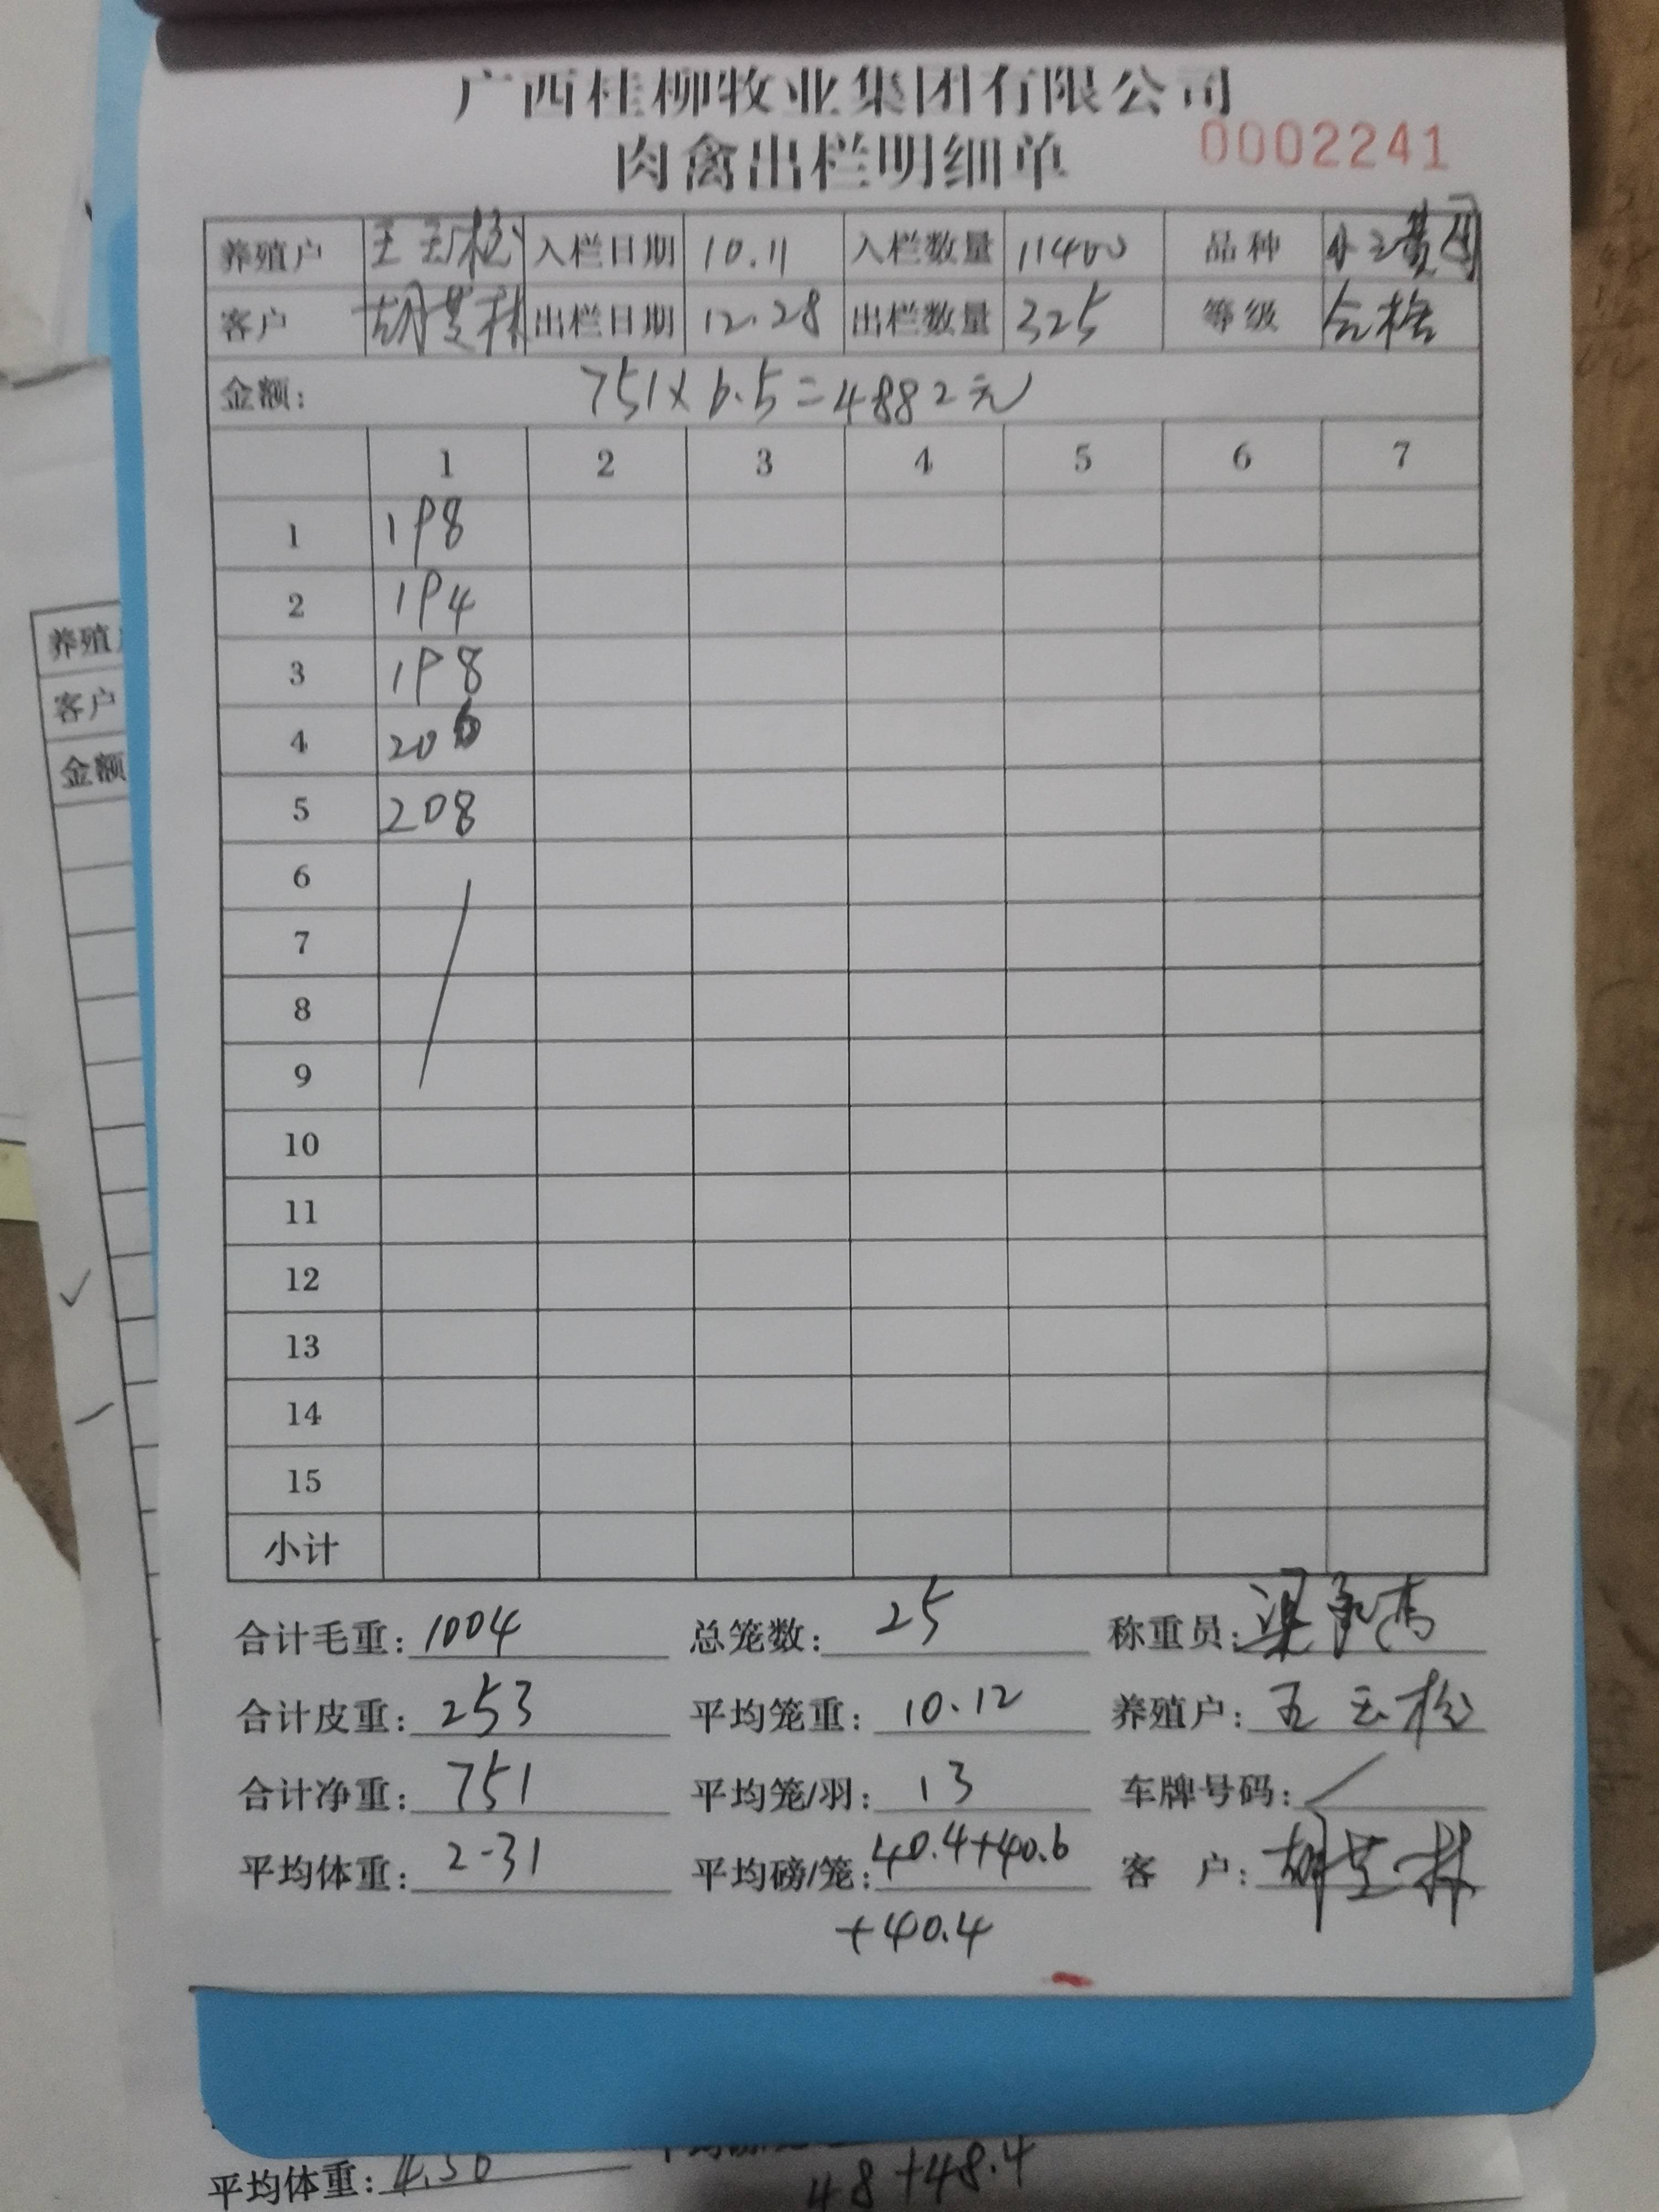 广西桂柳牧业集团有限公司
肉禽出栏明细单 0002241
养殖户 王玉松 入栏日期 10.11 入栏数量 11400 品种
客户 胡芝林 出栏日期 12.28 出栏数量 325 等级 合格
金额: 751×6.5=4882元
1 2 3 4 5 6 7
1 198
2 194
3 198
4 206
5 208
6
7
8
9
10
11
12
13
14
15
小计
合计毛重: 1004 总笼数: 25 称重员: 梁
合计皮重: 253 平均笼重: 10.12 养殖户: 王玉松
合计净重: 751 平均笼/羽: 13 车牌号码: /
平均体重: 2.31 平均磅/笼: 40.4+40.6 客 户: 胡芝林
+40.4
养殖
客户
金额
平均体重:
48+48.4